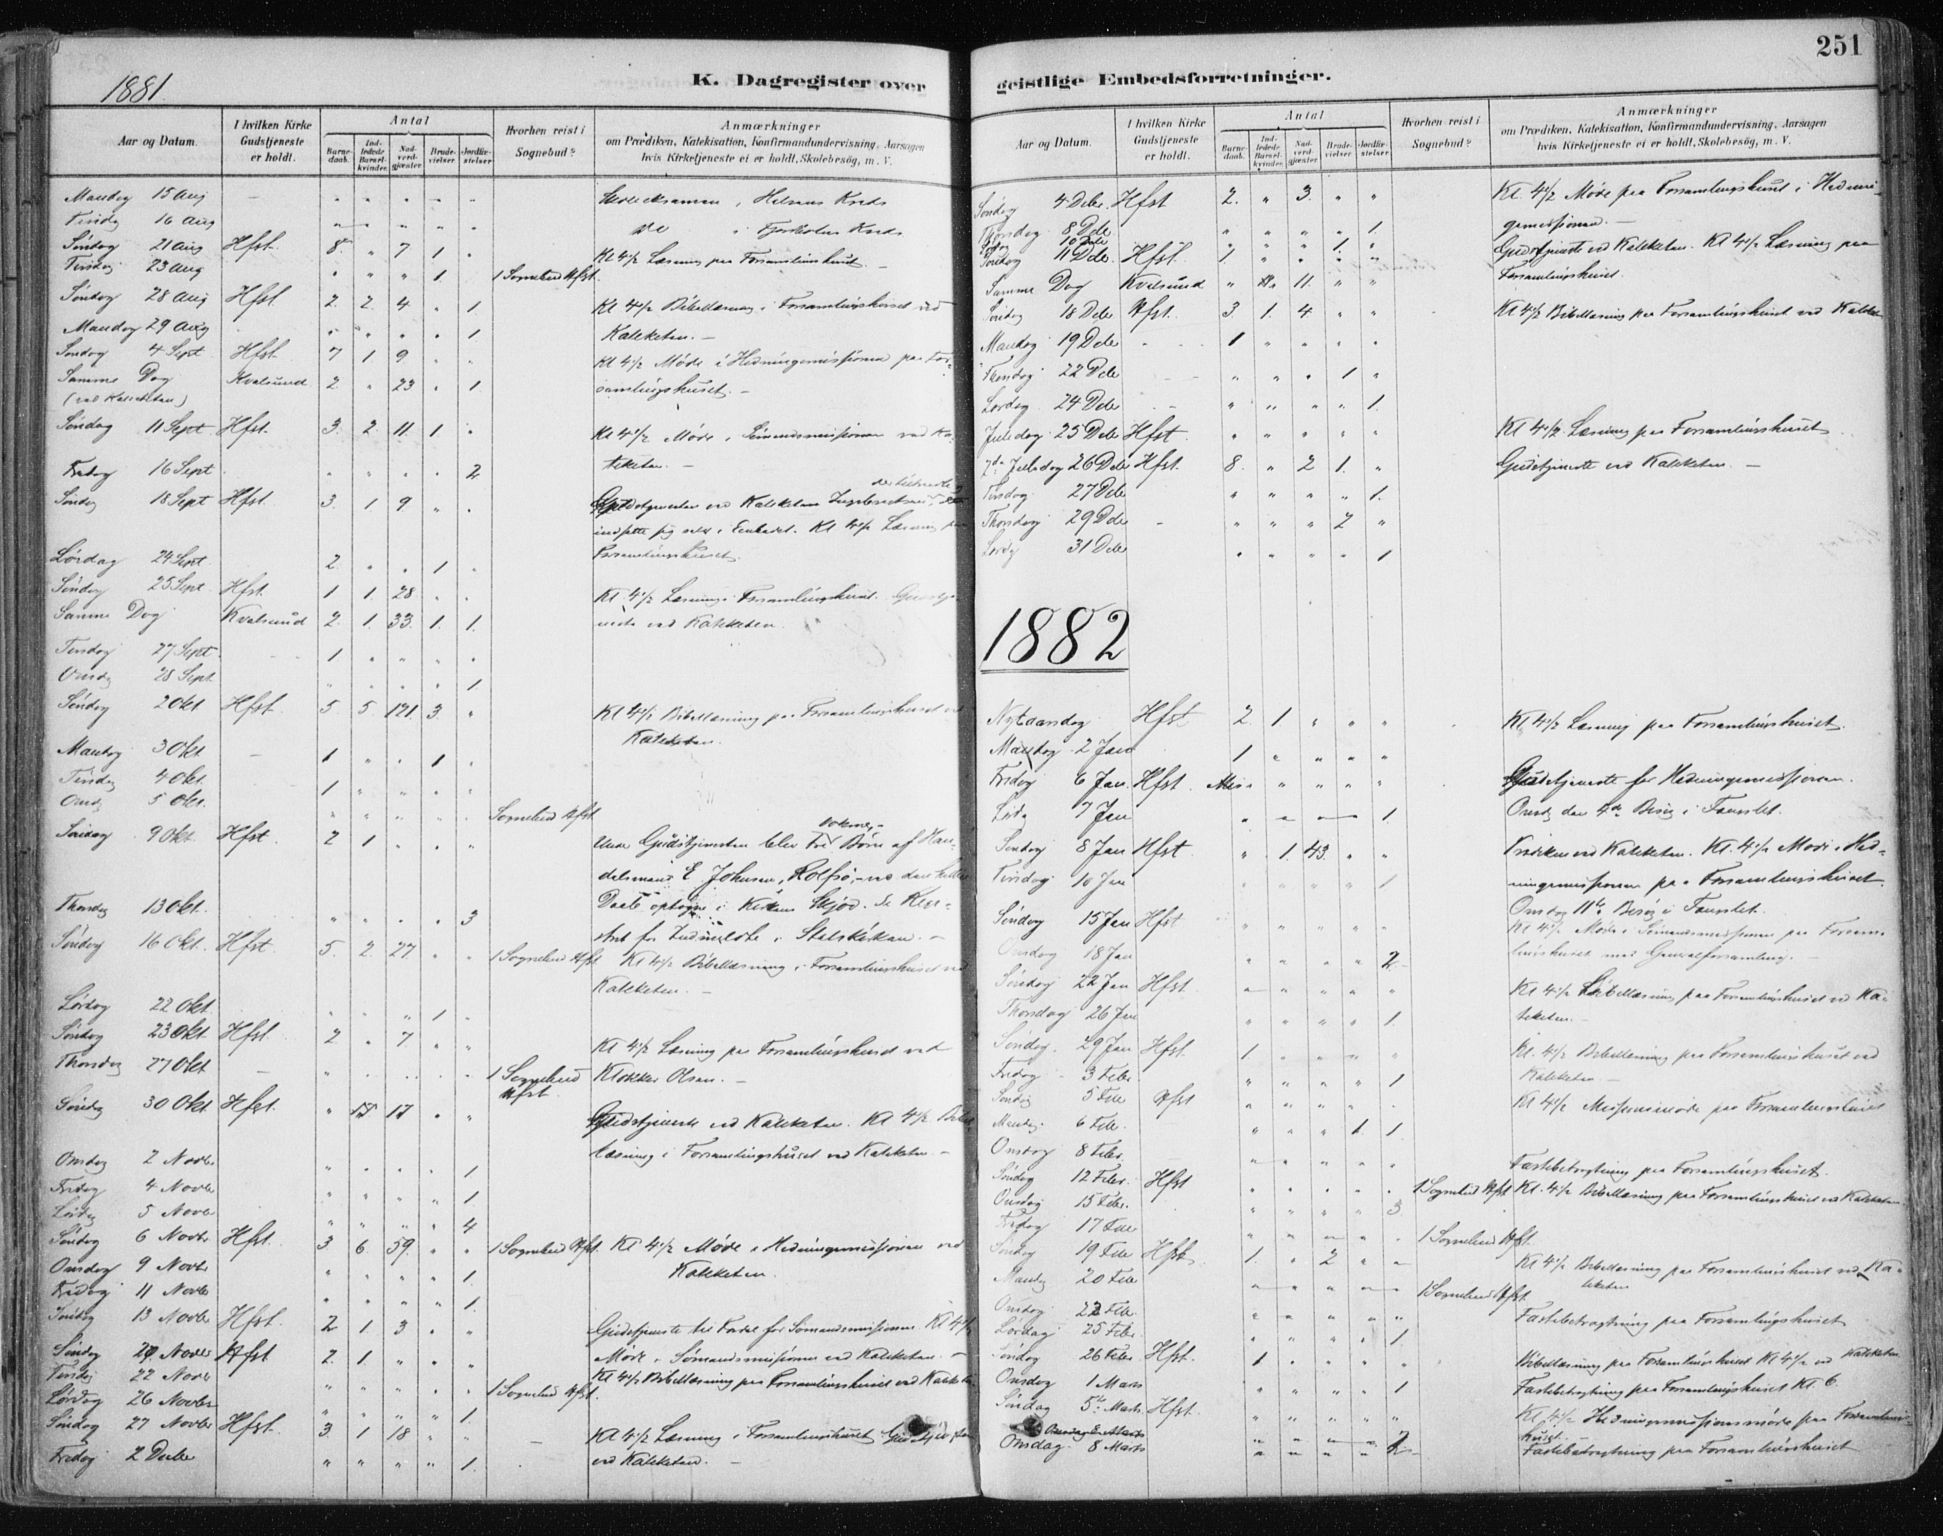 251
1881.
K. Dagregister over geistlige Embedsforretninger.
Aar og Datum. I hvilken Kirke Gudstjeneste er holdt. Antal Barnedaab. Indledede Barselkvinder. Nadverdgjæster Brudevielser Jordfæstelser Hvorhen reist i Sognebud? Anmærkninger om Prædiken, Katekisation, Konfirmandundervisning, Aarsagen hvis Kirketjeneste ei er holdt, Skolebesøg, m. V.
Mandag 15 Aug - " " " " "
Tirsdag 16 Aug " " " "
Søndag 21 Aug Hfst. 8. " 7 1 " Kl 4 1/2 Læsning paa Forsamlingshuset
Tirsdag 23 Aug " " " " 1 1 Sognebud Hfst.
Søndag 28 Aug Hfst. 2 2 4 " 1 Kl 4 1/2 Bibellæsning i Forsamlingshuset ved
Mandag 29 Aug " " " " 1 Kateketen. -
Søndag 4 Sept Hfst. 7 1 9 " " Kl 4 1/2 Møde i Hedningemissionen paa For-
Samme Dag Kvalsund 2 " 23 " 1. samlingshuset. -
(ved Kateketen)
Søndag 11 Sept Hfst. 3. 2 11. 1 " Kl 4 1/2 Møde i Sømandsmissionen ved Ka-
Fredag 16 Sept. " " " " 2 teketen. -
Søndag 18 Sept Hfst. 3 1 9 " " Gudstjenesten ved Kateketen
Kl 4 1/2 Læsning
Forsamlingshuset.
Lørdag 24 Sept 2 " " 1 "
Søndag 25 Sept Hfst. 1 1 28 " " Kl 4 1/2 Læsning i Forsamlingshuset. Gudstje-
Samme Dag Kvalsund 2. 1. 33. 1. 1. neste ved Kateketen.
Tirsdag 27 Sept. 1 " " " "
Onsdag 28 Sept. " " " " 1
Søndag 2 Okt Hfst. 5. 5 121 3 " Kl 4 1/2 Bibellæsning paa Forsamlingshuset ved
Kateketen.
Mandag 3 Okt - 1 " " 1 "
Tirsdag 4 Okt. 1 " " " "
Onsdag 5 Okt. " " " " " Sognebud Hfst
Søndag 9 Okt. Hfst 2 1 " " " Under Gudstjenesten blev Tre Børn af Han-
delsmand E. Johnsen, Rolfsø,
Daab optagne i Kirkens Skjød.
Thorsdag 13 Okt. " " " " 3
Søndag 16 Okt. Hfst 5. 2. 27 " " 1 Sognebud Hfst Kl 4 1/2 Bibellæsning i Forsamlingshuset ved
Kateketen. -
Lørdag 22 Okt. " " " 1 "
Søndag 23 Okt Hfst. 2 " 7 " " Kl 4 1/2 Læsning paa Forsamlingshuset ved
Thorsdag 27 Okt - " " " " " 1 Sognebud Hfst. Klokker Olsen. -
Søndag 30 Okt Hfst. " 17 " " Gudstjeneste ved Kateketen. Kl 4 1/2 Bibel-
læsning i Forsamlingshuset ved Kateketen. -
Onsdag 2 Novbr " " " " 1
Fredag 4 Novbr " " " " 1
Lørdag 5 Novbr " " " " 4
Søndag 6 Novbr Hfst. 3 6 59. " " 1 Sognebud Hfst. Kl 4 1/2 Møde i Hedningemissionen ved
Onsdag 9 Novbr " " " " 1. Kateketen.
Fredag 11 Novbr " " " " 1.
Søndag 13 Novbr Hfst. 2 1 3 " " Gudstjeneste til Fordel for Sømandsmissionen. Kl 4 1/2
Søndag 20 Novbr Hfst 2. 1. " " " Møde i Sømandsmissionen ved Kateketen. -
Tirsdag 22 Novbr " " " " " 1 Sognebud Hfst. Kl 4 1/2 Bibellæsning paa Forsamlingshuset ved Kateketen
Lørdag 26 Novbr " " " " 1.
Søndag 27 Novbr Hfst. 3 1 18 " " - Kl 4 1/2 Læsning i Forsamlingshuset.
Fredag 2 Decbr " " " " 1. ved Kateketen. -
Søndag 4 Debr. Hfst 2. " 3. " " Kl 4 1/2 Møde paa Forsamlingshuset i Hednin-
Thorsdag 8 Dcbr " " " " 1. gemissionen. -
10 Dcbr " " " 1. "
Søndag 11 Dcbr. Hfst. 1 " " " " Gudstjeneste ved Kateketen. Kl 4 1/2 Læsning paa
Samme Dag Kvalsund " 11. " " Forsamlingshuset.
Søndag 18 Dcbr Hfst. 3 1. 4 " " Kl 4 1/2 Bibellæsning paa Forsamlingshuset ved Kateket
Mandag 19 Dcbr 1 " " " "
Thorsdag 22 Dcbr " " " 1 "
Lørdag 24 Dcbr " " " " 1.
Juledag 25 Dcbr Hfst. " " " " " Kl 4 1/2 Læsning paa Forsamlingshuset
2den Juledag 26 Dcbr Hfst. 8. " 2 1. " Gudstjeneste ved Kateketen. -
Tirsdag 27 Dcbr " " " " 1.
Thorsdag 29 Dcbr - " " " 2 "
Lørdag 31 Dcbr " " " " 1
1882
Nytaarsdag Hfst 2. 1 " " " Kl 4 1/2 Læsning paa Forsamlingshuset.
Mandag 2 Jan 1 " " " "
Fredag 6 Jan. Hfst. " " " " Gudstjeneste for Hedningemissionen.
Lørdag 7 Jan " " " " 1. Onsdag den 4de Besøg i Fanslet.
Søndag 8 Jan Hfst " 1. 43. " " Prædiken ved Kateketen. Kl. 4 1/2 Møde i Hed-
Tirsdag 10 Jan " " " " 1 ningemissionen paa Forsamlingshuset.
Onsdag 11te Besøg i Fanslet.
Søndag 15 Jan Hfst " " " " " Kl 4 1/2 Møde i Sømandsmissionen paa Forsam-
Onsdag 18 Jan " " " " 2 lingshuset med Generalforsamling. -
Søndag 22 Jan Hfst. " " " " " Kl 4 1/2 Bibellæsning paa Forsamlingshuset ved Ka-
Thorsdag 26 Jan " " " " 1. teketen. -
Søndag 29 Jan Hfst. 1. " " " " Kl. 4 1/2 Bibellæsning paa Forsamlingshuset ved
Fredag 3 Febr. " " " " 1 Kateketen. -
Søndag 5 Febr Hfst " " " " " Kl 4 1/2 Missionsmøde paa Forsamlingshuset
Mandag 6 Febr. " " " 1. 1.
Onsdag 8 Febr " " " " " Fastebetragtning paa Forsamlingshuset.
Søndag 12 Febr. Hfst " " " " " 1 Sognebud Hfst Kl. 4 1/2 Bibellæsning paa Forsamlingshuset ved Kateketen
Onsdag 15 Febr. " " " " 3
Fredag 17 Febr " " " " " 1 Sognebud Hfst.
Søndag 19 Febr Hfst 1. " 2 " " Kl 4 1/2 Bibellæsning paa Forsamlingshuset ved Ka-
Mandag 20 Febr " " " " " 1 Sognebud Hfst. teketen
Onsdag 22 Febr. " " " " " Fastebetragtning paa Forsamlingshuset
Lørdag 25 Febr. " " " " 1
Søndag 26 Febr. Hfst. 1 " " " " Bibellæsning paa Forsamlingshuset Kl 4 1/2 ved Kateketen
Onsdag 1 Mars " " " " 1 Fastebetragtning paa Forsamlingshuset Kl. 6.
Søndag 5te Mars Hfst. " " " " " Kl 4 1/2 Hedningemissionsmøde paa Forsamlings-
huset. -
Onsdag 8 Mars " " " " 2 Fastebetragtning paa Forsamlingshuset